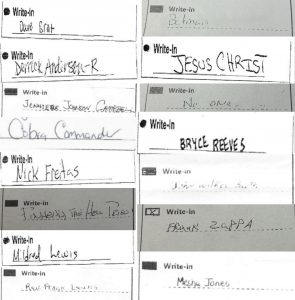 Write-in
Dave Brat
Write-in
Derrick Anderson-R
Write-in
Write-in
Cobra Commander
Write-in
Nick Freitas
Write-in
Write-in
Mildred Lewis
Write-in
Write-in
Batman
Write-in
JESUS CHRIST
Write-in
No one
Write-in
BRYCE REEVES
Write-in
Write-in
FRANK ZAPPA
Write-in
Misha Jones